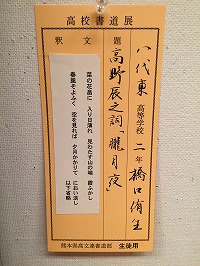 高校書道展
題
高野辰之詞「朧月夜」
八代東高等学校 二年 橋口侑生
釈文
菜の花畠に 入り日薄れ 見わたす山の端 霞ふかし
春風そよふく 空を見れば 夕月かかりて におい淡し
以下省略
熊本県高文連書道部 生徒用